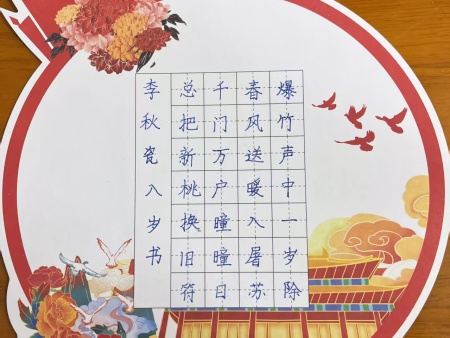 爆竹声中一岁除
春风送暖入屠苏
千门万户瞳瞳日
总把新桃换旧符
李秋瓷入岁书